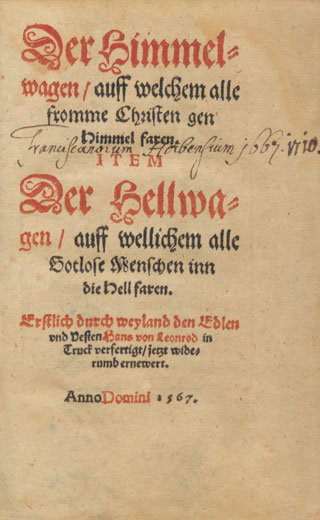 Der Himmel-
wagen / auff welchem alle
fromme Christen gen
Himmel faren.
Franciscanorum 1667.
ITEM
Der Hellwa-
gen / auff wellichem alle
Gotlose Menschen inn
die Hell faren.
Erstlich durch weyland den Edlen
vnd Vesten Hans von Leonrod in
Truck verfertigt / jetzt wide-
rumb ernewert.
Anno Domini 1567.